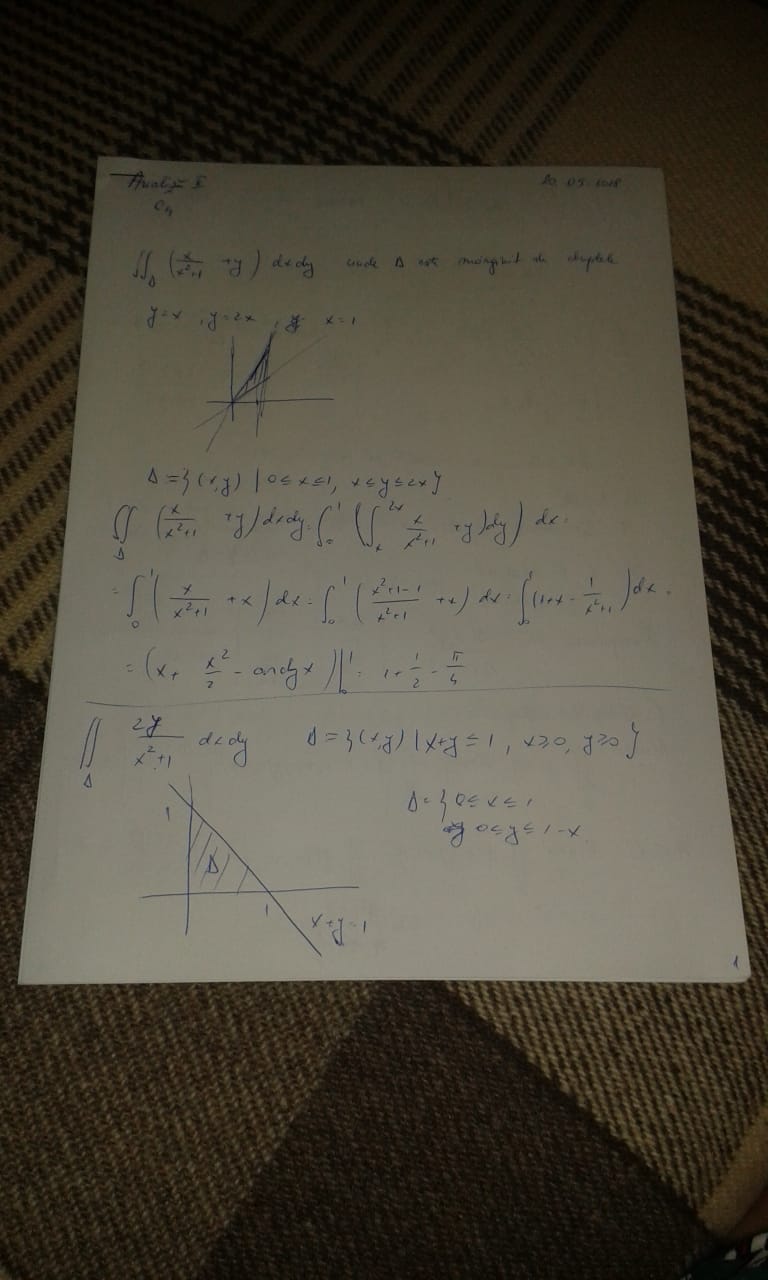 Analiză II 20.05.2018
C4
∬_Δ (x/(x²+1) + y) dxdy unde Δ este mărginit de dreptele
y=x , y=2x , x=1
Δ = {(x,y) | 0≤x≤1, x≤y≤2x}
∬_Δ (x/(x²+1) + y) dxdy = ∫_0^1 (∫_x^{2x} x/(x²+1) + y) dy) dx =
= ∫_0^1 (x/(x²+1) + x) dx = ∫_0^1 ((x²+1-1)/(x²+1) + x) dx = ∫_0^1 (1+x - 1/(x²+1)) dx =
= (x + x²/2 - arctg x) |_0^1 = 1 + 1/2 - π/4
∬_Δ 2y/(x²+1) dxdy Δ = {(x,y) | x+y≤1, x≥0, y≥0}
Δ = { 0≤x≤1
0≤y≤1-x
1
Δ
1
x+y=1
1